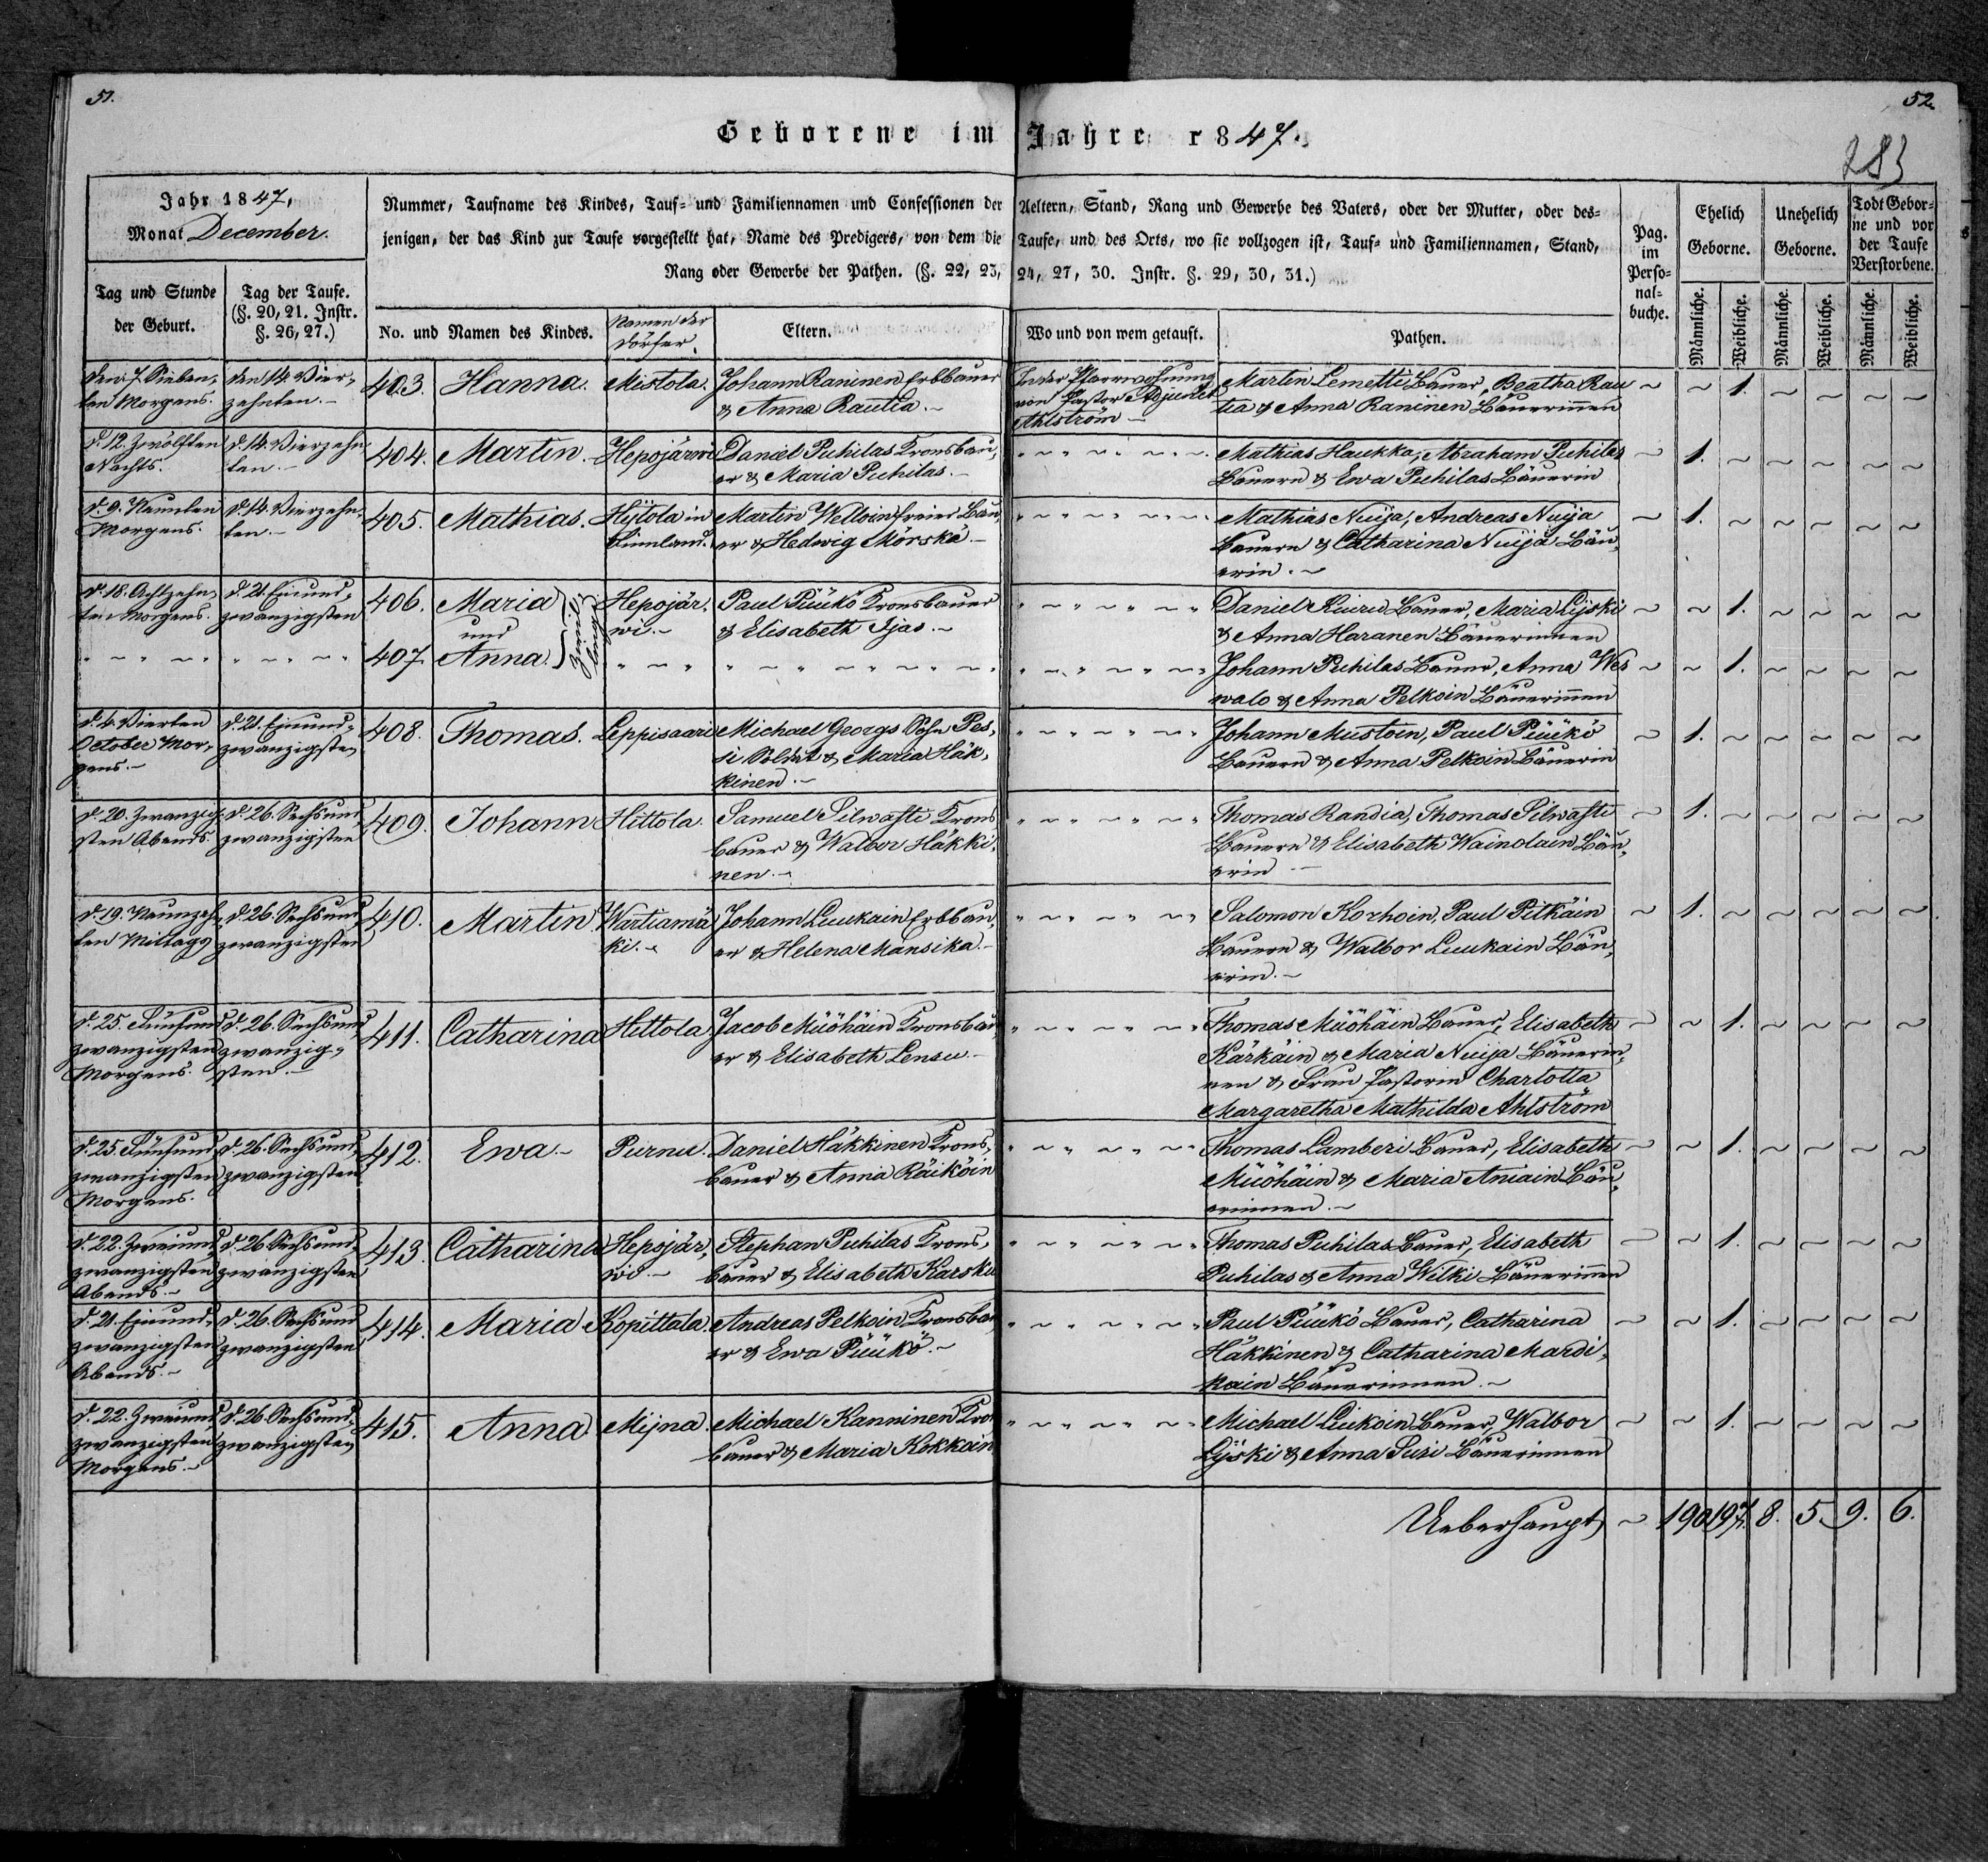 51.
52.
Geborene im Jahre 1847.
283
Jahr 1847,
Monat December.
Nummer, Taufname des Kindes, Tauf- und Familiennamen und Confessionen der Aeltern, Stand, Rang und Gewerbe des Vaters, oder der Mutter, oder des-
jenigen, der das Kind zur Taufe vorgestellt hat, Name des Predigers, von dem die Taufe, und des Orts, wo sie vollzogen ist, Tauf- und Familiennamen, Stand,
Rang oder Gewerbe der Pathen. (§. 22, 23, 24, 27, 30. Instr. §. 29, 30, 31.)
Pag.
im
Perso-
nal-
buche.
Ehelich
Geborne.
Unehelich
Geborne.
Todt Gebor-
ne und vor
der Taufe
Verstorbene.
Tag und Stunde
der Geburt.
Tag der Taufe.
(§. 20, 21. Instr.
§. 26, 27.)
No. und Namen des Kindes.
Namen der
Dörfer.
Eltern.
Wo und von wem getauft.
Pathen.
Männliche. Weibliche. Männliche. Weibliche. Männliche. Weibliche.
den 7. Sieben,
ten Morgens.
den 14. Vier,
zehnten.-
403. Hanna.
Mistola.
Johann Raninen Erbbauer
& Anna Rautia.-
In der Pfarrwohnung
von Pastor Adjunct
Ahlström-
Martin Lemetti Bauer, Beatha Rau
tia & Anna Raninen Bäuerinnen
~ ~ 1. ~ ~ ~ ~
d. 12. Zwölften
Nachts.
d. 14. Vierzehn
ten.-
404. Martin.
Hepojärwi
Daniel Puhilas Kronsbau,
er & Maria Puhilas.-
" ~ " ~ " ~ " ~
Mathias Haukka, Abraham Puhilas
Bauern & Ewa Puhilas Bäuerin
~ 1. ~ ~ ~ ~ ~
d. 9. Neunten
Morgens.
d. 14. Vierzehn,
ten.-
405. Mathias.
Hÿtola in
Finnland.
Martin Welloin freier Bau,
er & Hedwig Mörskä.-
" ~ " ~ " ~ " ~
Mathias Nuija, Andreas Nuija
Bauern & Catharina Nuija Bäu,
erin.~
~ 1. ~ ~ ~ ~ ~
d. 18. Achtzehn,
ten Morgens.
d. 21. Einund,
zwanzigsten
406. Maria
und
Zwillinge
Hepojär,
wi.-
Paul Püükö Kronsbauer
& Elisabeth Ijas.-
" ~ " ~ " ~
Daniel Kiuru Bauer, Maria Lijski
& Anna Haranen Bäuerinnen
~ ~ 1. ~ ~ ~ ~
407. Anna.
" ~ " ~ " ~
Johann Puhilas Bauer, Anna Wes
walo & Anna Pelkoin Bäuerinnen
~ ~ 1. ~ ~ ~ ~
d. 4. Vierten
October Mor,
gens.-
d. 21. Einund,
zwanzigsten
408. Thomas.
Leppisaari
Michael Georgs Sohn Pes,
si Soldat & Maria Häk,
kinen.-
" ~ " ~ " ~
Johann Mustoin, Paul Püükö
Bauern & Anna Pelkoin Bäuerin
~ 1. ~ ~ ~ ~ ~
d. 20. Zwanzig,
sten Abends.
d. 26. Sechsund
zwanzigsten
409. Johann
Hittola.
Samuel Silwasti Krons
bauer & Walbor Häkki,
nen.-
" ~ " ~ " ~
Thomas Randia, Thomas Silwasti
Bauern & Elisabeth Wainolain Bäu,
erin -
~ 1. ~ ~ ~ ~ ~
d. 19. Neunzehn,
ten Mittags
d. 26. Sechsund
zwanzigsten
410. Martin
Wartiamä
ki.-
Johann Luukain Erbbau,
er & Helena Mansika.-
" ~ " ~ " ~
Salomon Korhoin, Paul Pitkäin
Bauern & Walbor Luukain Bäu,
erin.-
~ 1. ~ ~ ~ ~ ~
d. 25. Fünfund
zwanzigsten
Morgens.
d. 26. Sechsund
zwanzig,
sten.-
411. Catharina
Hittola.
Jacob Müöhäin Kronsbau,
er & Elisabeth Lensu-
" ~ " ~ " ~
Thomas Müöhäin Bauer, Elisabeth
Kärkäin & Maria Nuija Bäuerin,
nen & Frau Pastorin Charlotta
Margaretha Mathilda Ahlström
~ ~ 1. ~ ~ ~ ~
d. 25. Fünfund,
zwanzigsten
Morgens.
d. 26. Sechsund,
zwanzigsten
412. Ewa.-
Purnu.
Daniel Häkkinen Krons,
bauer & Anna Räiköin
" ~ " ~ " ~
Thomas Lamberi Bauer, Elisabeth
Müöhäin & Maria Aniain Bäu,
erinnen.-
~ ~ 1. ~ ~ ~ ~
d. 22. Zweiund,
zwanzigsten
Abends.-
d. 26. Sechsund,
zwanzigsten
413. Catharina
Hepojär,
wi.-
Stephan Puhilas Krons,
bauer & Elisabeth Karsku
" ~ " ~ " ~
Thomas Puhilas Bauer, Elisabeth
Puhilas & Anna Wilki Bäuerinnen
~ ~ 1. ~ ~ ~ ~
d. 21. Einund,
zwanzigsten
Abends.-
d. 26. Sechsund
zwanzigsten
414. Maria
Kopittala.
Andreas Pelkoin Kronsbau,
er & Ewa Püükö.-
" ~ " ~ " ~
Paul Püükö Bauer, Catharina
Häkkinen & Catharina Mardi,
kain Bäuerinnen.-
~ ~ 1. ~ ~ ~ ~
d. 22. Zweiund
zwanzigsten
Morgens.-
d. 26. Sechsund,
zwanzigsten
415. Anna
Mijna.
Michael Kanninen Kron
bauer & Maria Kokkoin
" ~ " ~ " ~
Michael Liukoin Bauer, Walbor
Lijski & Anna Susi Bäuerinnen
~ ~ 1. ~ ~ ~ ~
Ueberhaupt ~ 190 197. 8. 5. 9. 6.